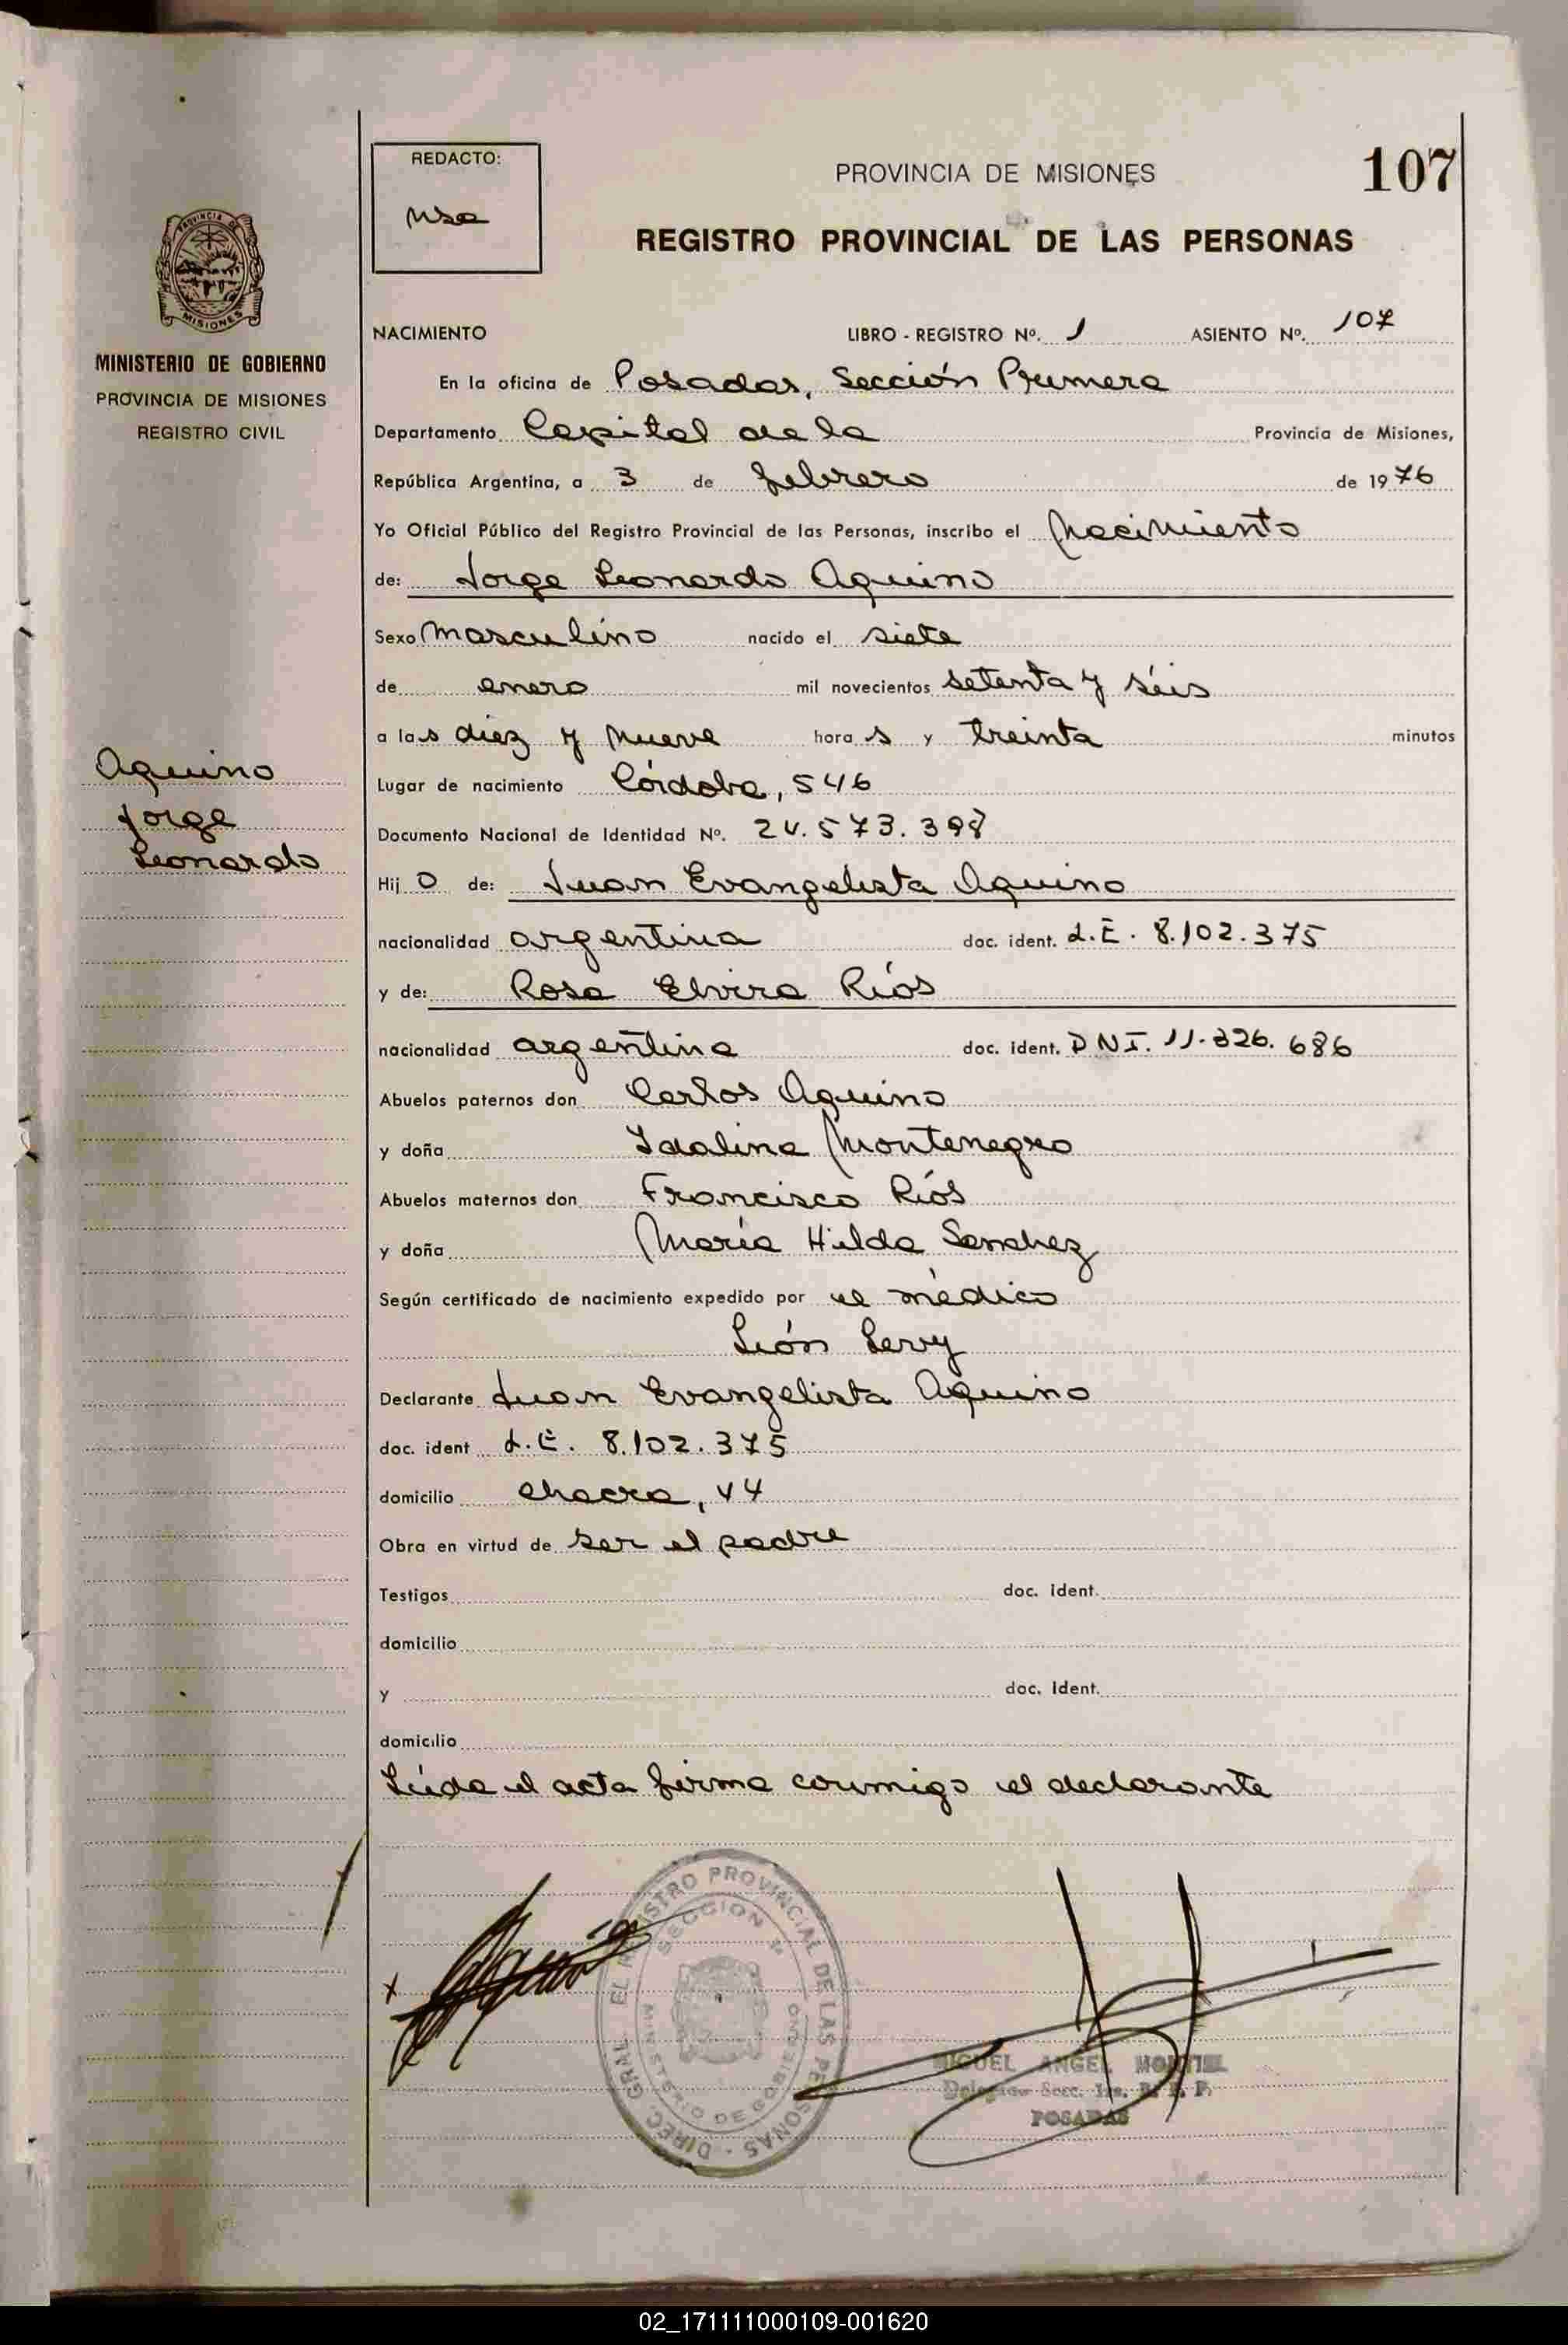 REDACTO:
PROVINCIA DE MISIONES
107
REGISTRO PROVINCIAL DE LAS PERSONAS
PROVINCIA DE
MISIONES
MINISTERIO DE GOBIERNO
PROVINCIA DE MISIONES
REGISTRO CIVIL
NACIMIENTO LIBRO - REGISTRO Nº. 1 ASIENTO Nº. 107
En la oficina de Posadas, Sección Primera
Departamento Capital de la Provincia de Misiones,
República Argentina, a 3 de febrero de 1976
Yo Oficial Público del Registro Provincial de las Personas, inscribo el Nacimiento
de: Jorge Leonardo Aquino
Sexo Masculino nacido el siete
de enero mil novecientos setenta y séis
a las diez y nueve horas y treinta minutos
Aquino
Jorge
Leonardo
Lugar de nacimiento Córdoba, 546
Documento Nacional de Identidad Nº. 24.573.398
Hijo de: Juan Evangelista Aquino
nacionalidad argentina doc. ident. L.E. 8.102.375
y de: Rosa Elvira Ríos
nacionalidad argentina doc. ident. DNI. 11.326.686
Abuelos paternos don Carlos Aquino
y doña Idalina Montenegro
Abuelos maternos don Francisco Ríos
y doña María Hilda Sanchez
Según certificado de nacimiento expedido por el médico
León Levy
Declarante Juan Evangelista Aquino
doc. ident L.E. 8.102.375
domicilio chacra, 44
Obra en virtud de ser el padre
Testigos doc. ident.
domicilio
y doc. ident.
domicilio
Leída el acta firma conmigo el declarante
x Aquino
DIREC. GRAL. EL REGISTRO PROVINCIAL DE LAS PERSONAS
SECCION 1ª
MINISTERIO DE GOBIERNO
MIGUEL ANGEL MONTIEL
Delegado Secc. 1ra. R. P. P.
POSADAS
02_171111000109-001620